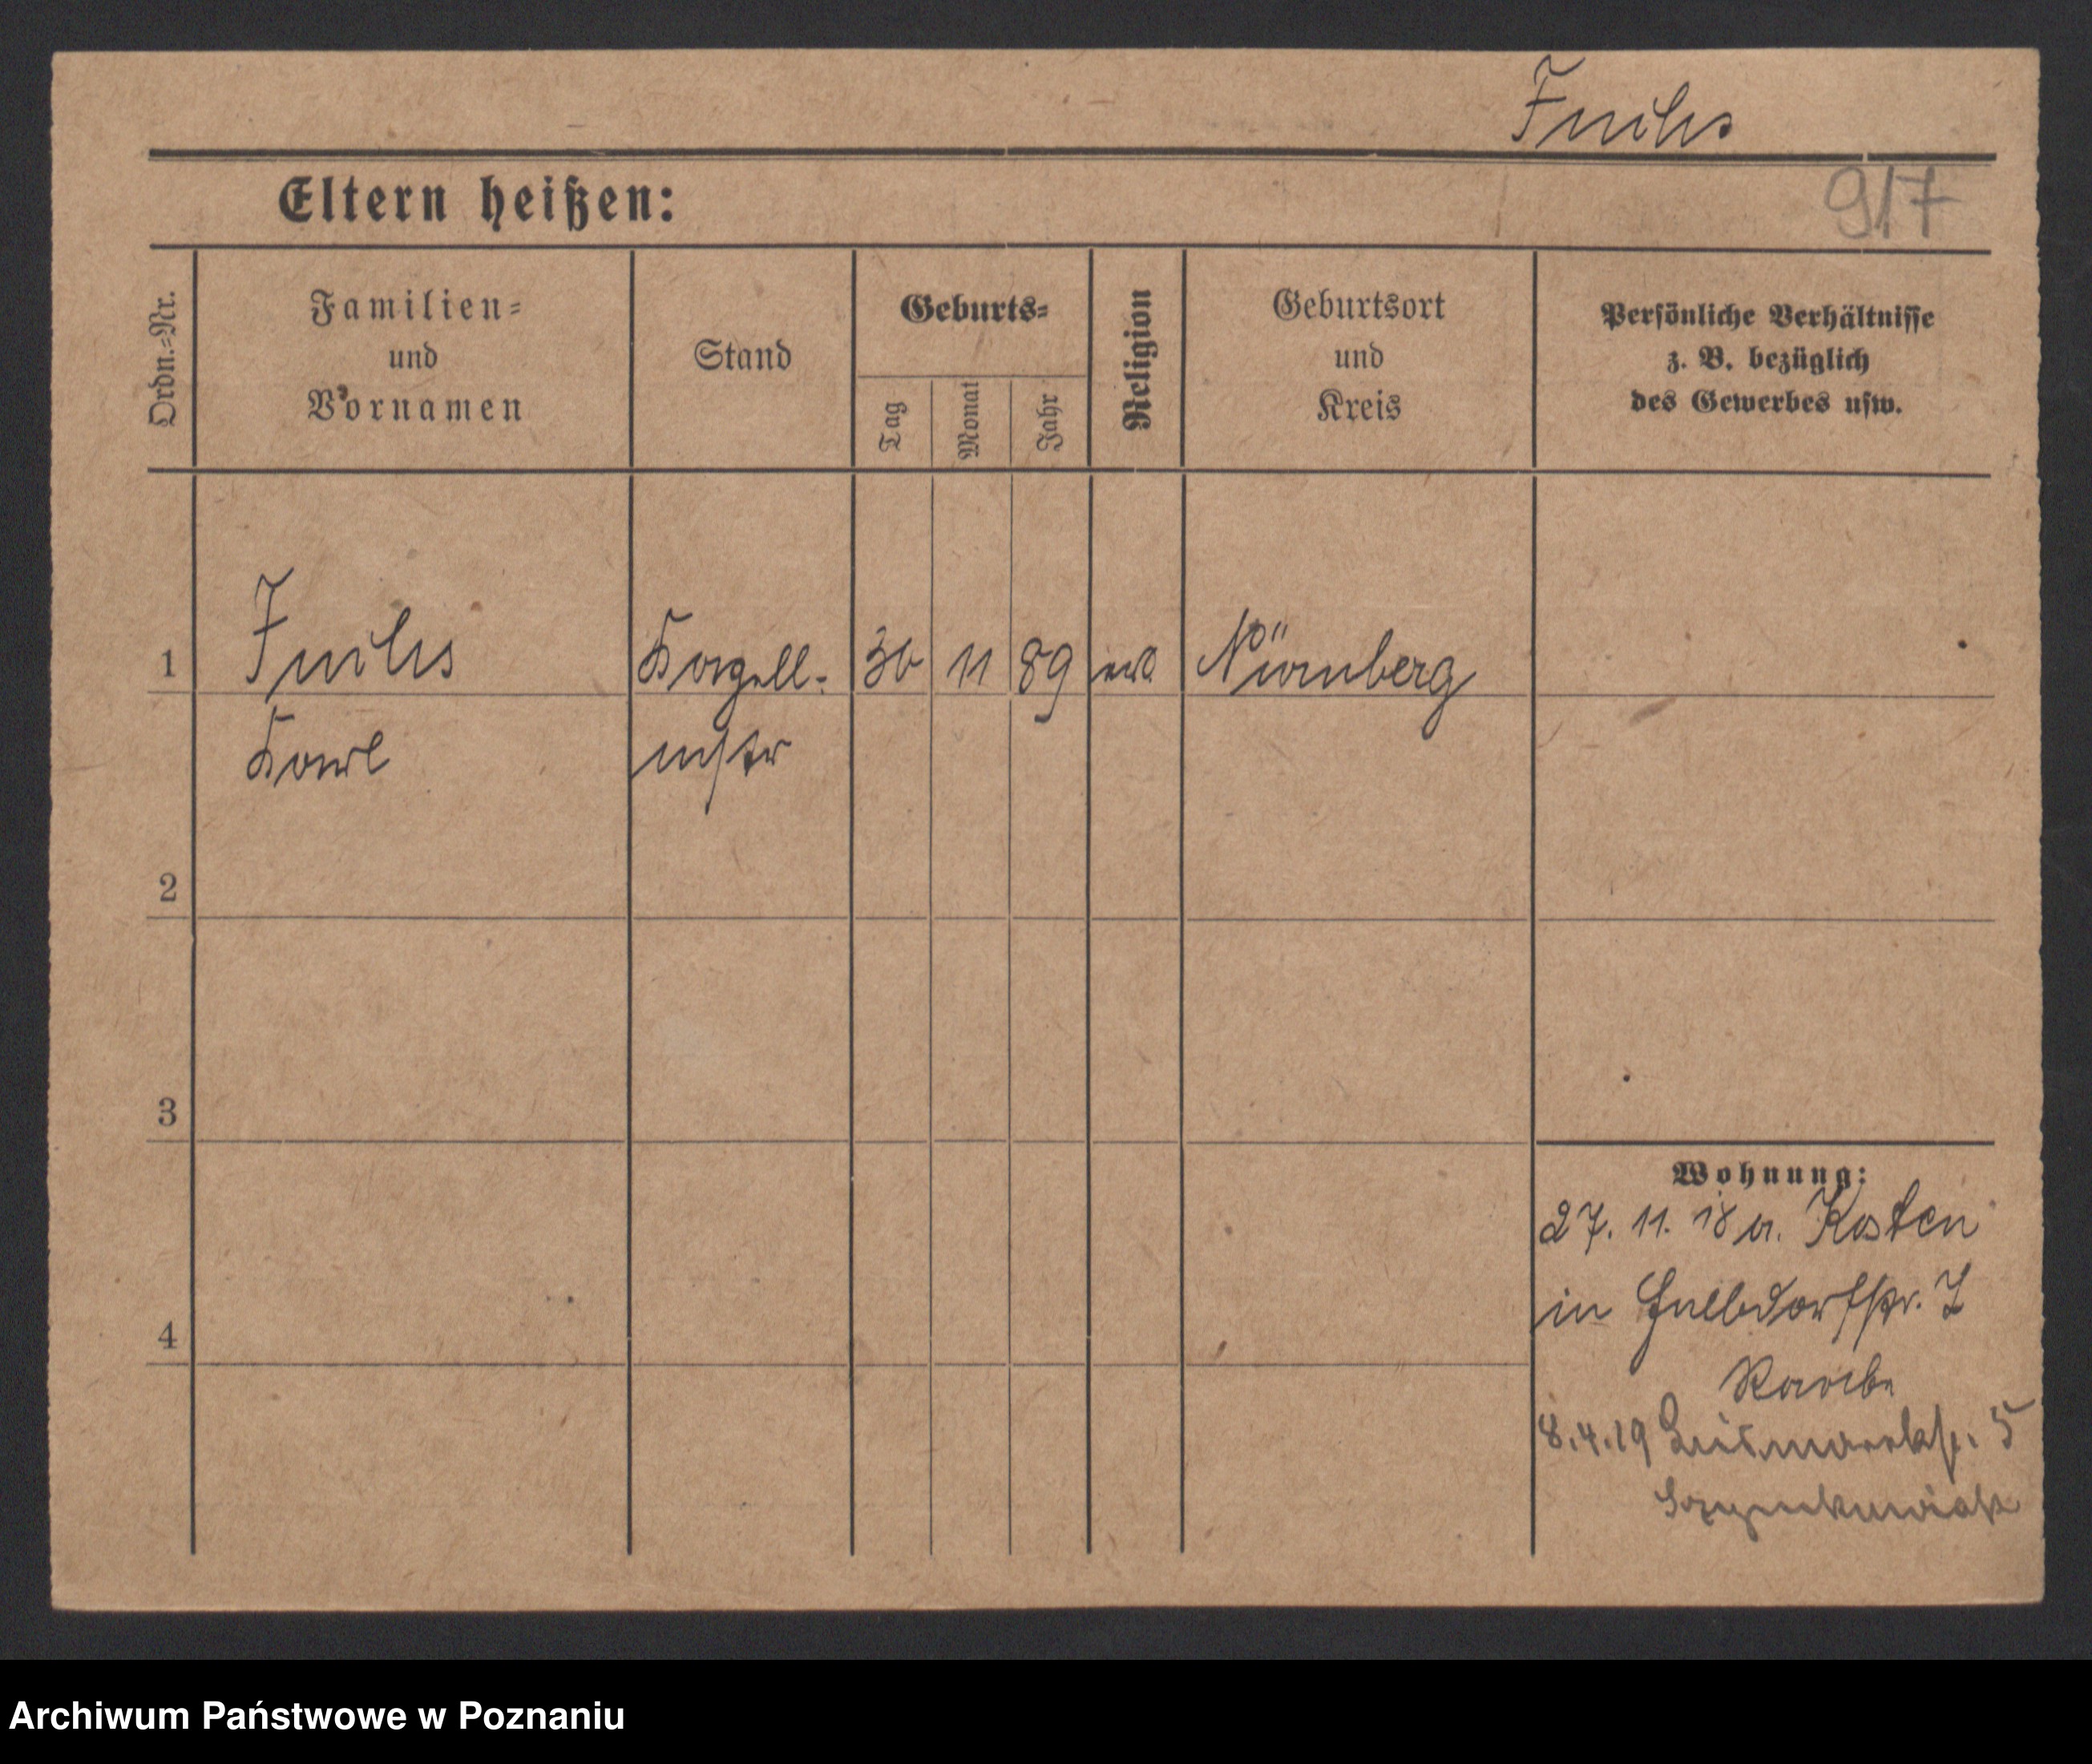 Fuchs
Eltern heißen:
917
Ordn.-Nr.
Familien-
und
Vornamen
Stand
Geburts-
Tag
Monat
Jahr
Religion
Geburtsort
und
Kreis
Persönliche Verhältnisse
z. B. bezüglich
des Gewerbes usw.
1
Fuchs
Kapell-
30
11
89
Nürnberg
Karl
mstr
2
3
4
Wohnung:
27. 11. 18 a. Kosten
in
8.4.19 5
Szymkowiak
Archiwum Państwowe w Poznaniu